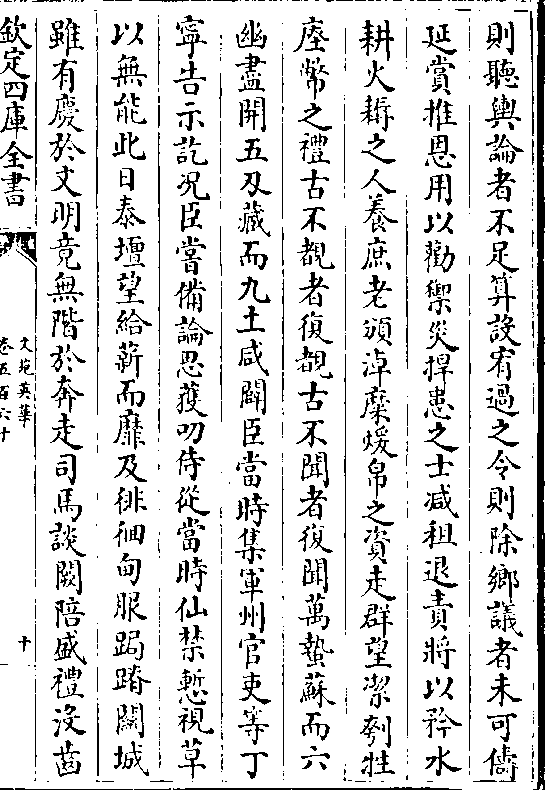 則聽輿論者不足算設宥過之令則除鄉議者未可儔
延賞推恩用以勸禦災捍患之士减租退責將以矜水
耕火耨之人養庶老頒淖糜煖帛之資走群望潔刳牲
㕓幣之禮古不覩者復覩古不聞者復聞萬蟄蘇而六
幽盡開五刄藏而九土咸闢臣當時集軍州官吏等丁
寧告示訖况臣嘗備論思獲叨侍從當時仙禁慙視草
以無能此日泰壇望給薪而靡及徘徊甸服跼蹐闗城
雖有慶於文明竟無階於奔走司馬談闕陪盛禮没齒
欽定四庫全書
文苑英華
卷五百六十
十